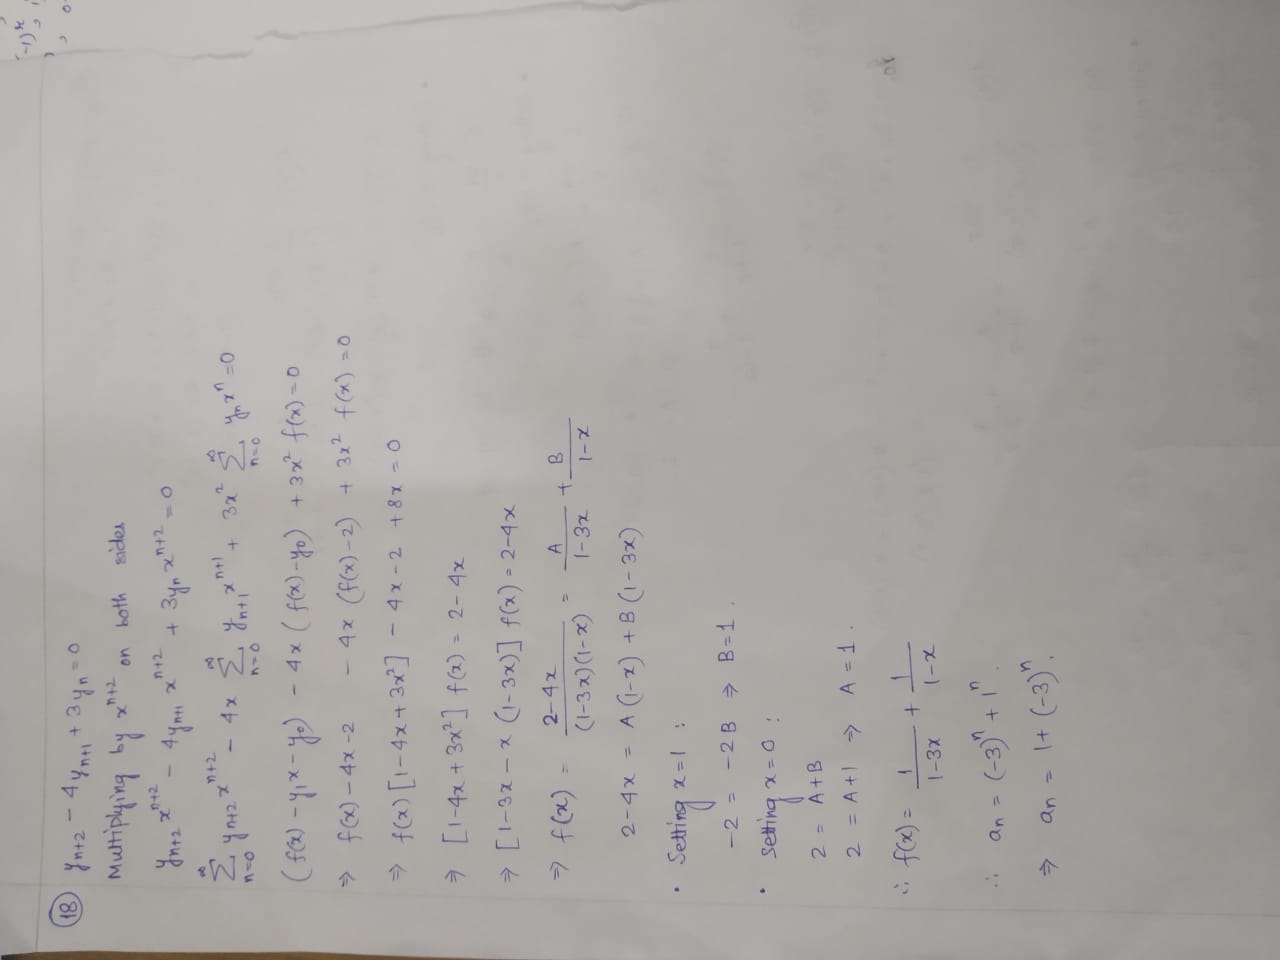 (18) yₙ₊₂ − 4yₙ₊₁ + 3yₙ = 0
Multiplying by xⁿ⁺² on both sides
yₙ₊₂ xⁿ⁺² − 4yₙ₊₁ xⁿ⁺² + 3yₙ xⁿ⁺² = 0
∞∑n=0 yₙ₊₂ xⁿ⁺² − 4x ∞∑n=0 yₙ₊₁ xⁿ⁺¹ + 3x² ∞∑n=0 yₙxⁿ = 0
(f(x) − y₁x − y₀) − 4x (f(x) − y₀) + 3x² f(x) = 0
⇒ f(x) − 4x − 2 − 4x (f(x) − 2) + 3x² f(x) = 0
⇒ f(x) [1 − 4x + 3x²] − 4x − 2 + 8x = 0
⇒ [1 − 4x + 3x²] f(x) = 2 − 4x
⇒ [1 − 3x − x (1 − 3x)] f(x) = 2 − 4x
⇒ f(x) = (2 − 4x)/((1 − 3x)(1 − x)) = A/(1 − 3x) + B/(1 − x)
2 − 4x = A (1 − x) + B (1 − 3x)
• Setting x = 1 :
−2 = −2B ⇒ B = 1.
• Setting x = 0 :
2 = A + B
2 = A + 1 ⇒ A = 1.
∴ f(x) = 1/(1 − 3x) + 1/(1 − x)
∴ aₙ = (−3)ⁿ + 1ⁿ.
⇒ aₙ = 1 + (−3)ⁿ.